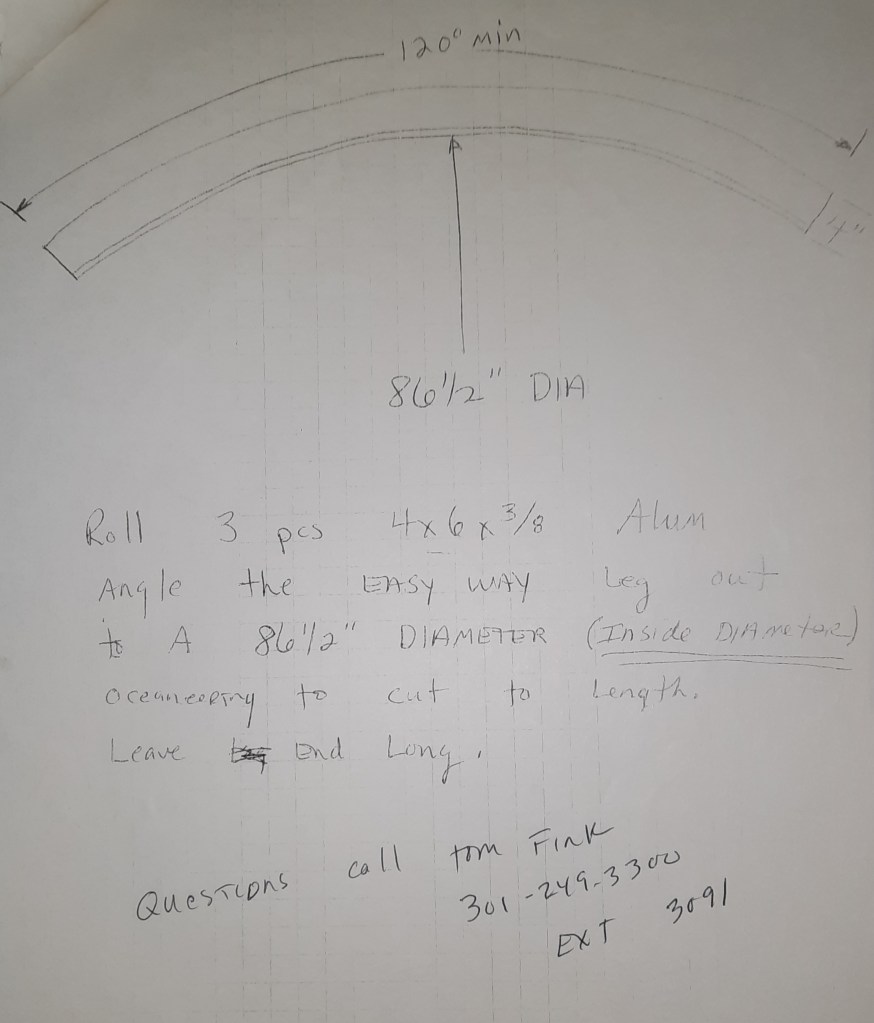 120° min
4"
86 1/2" DIA
Roll 3 pcs 4x6x3/8 Alum
Angle the EASY WAY Leg out
to A 86 1/2" DIAMETER (Inside DIAmeter)
Oceaneering to cut to Length.
Leave End Long.
Questions call tom Fink
301-249-3300
EXT 3091